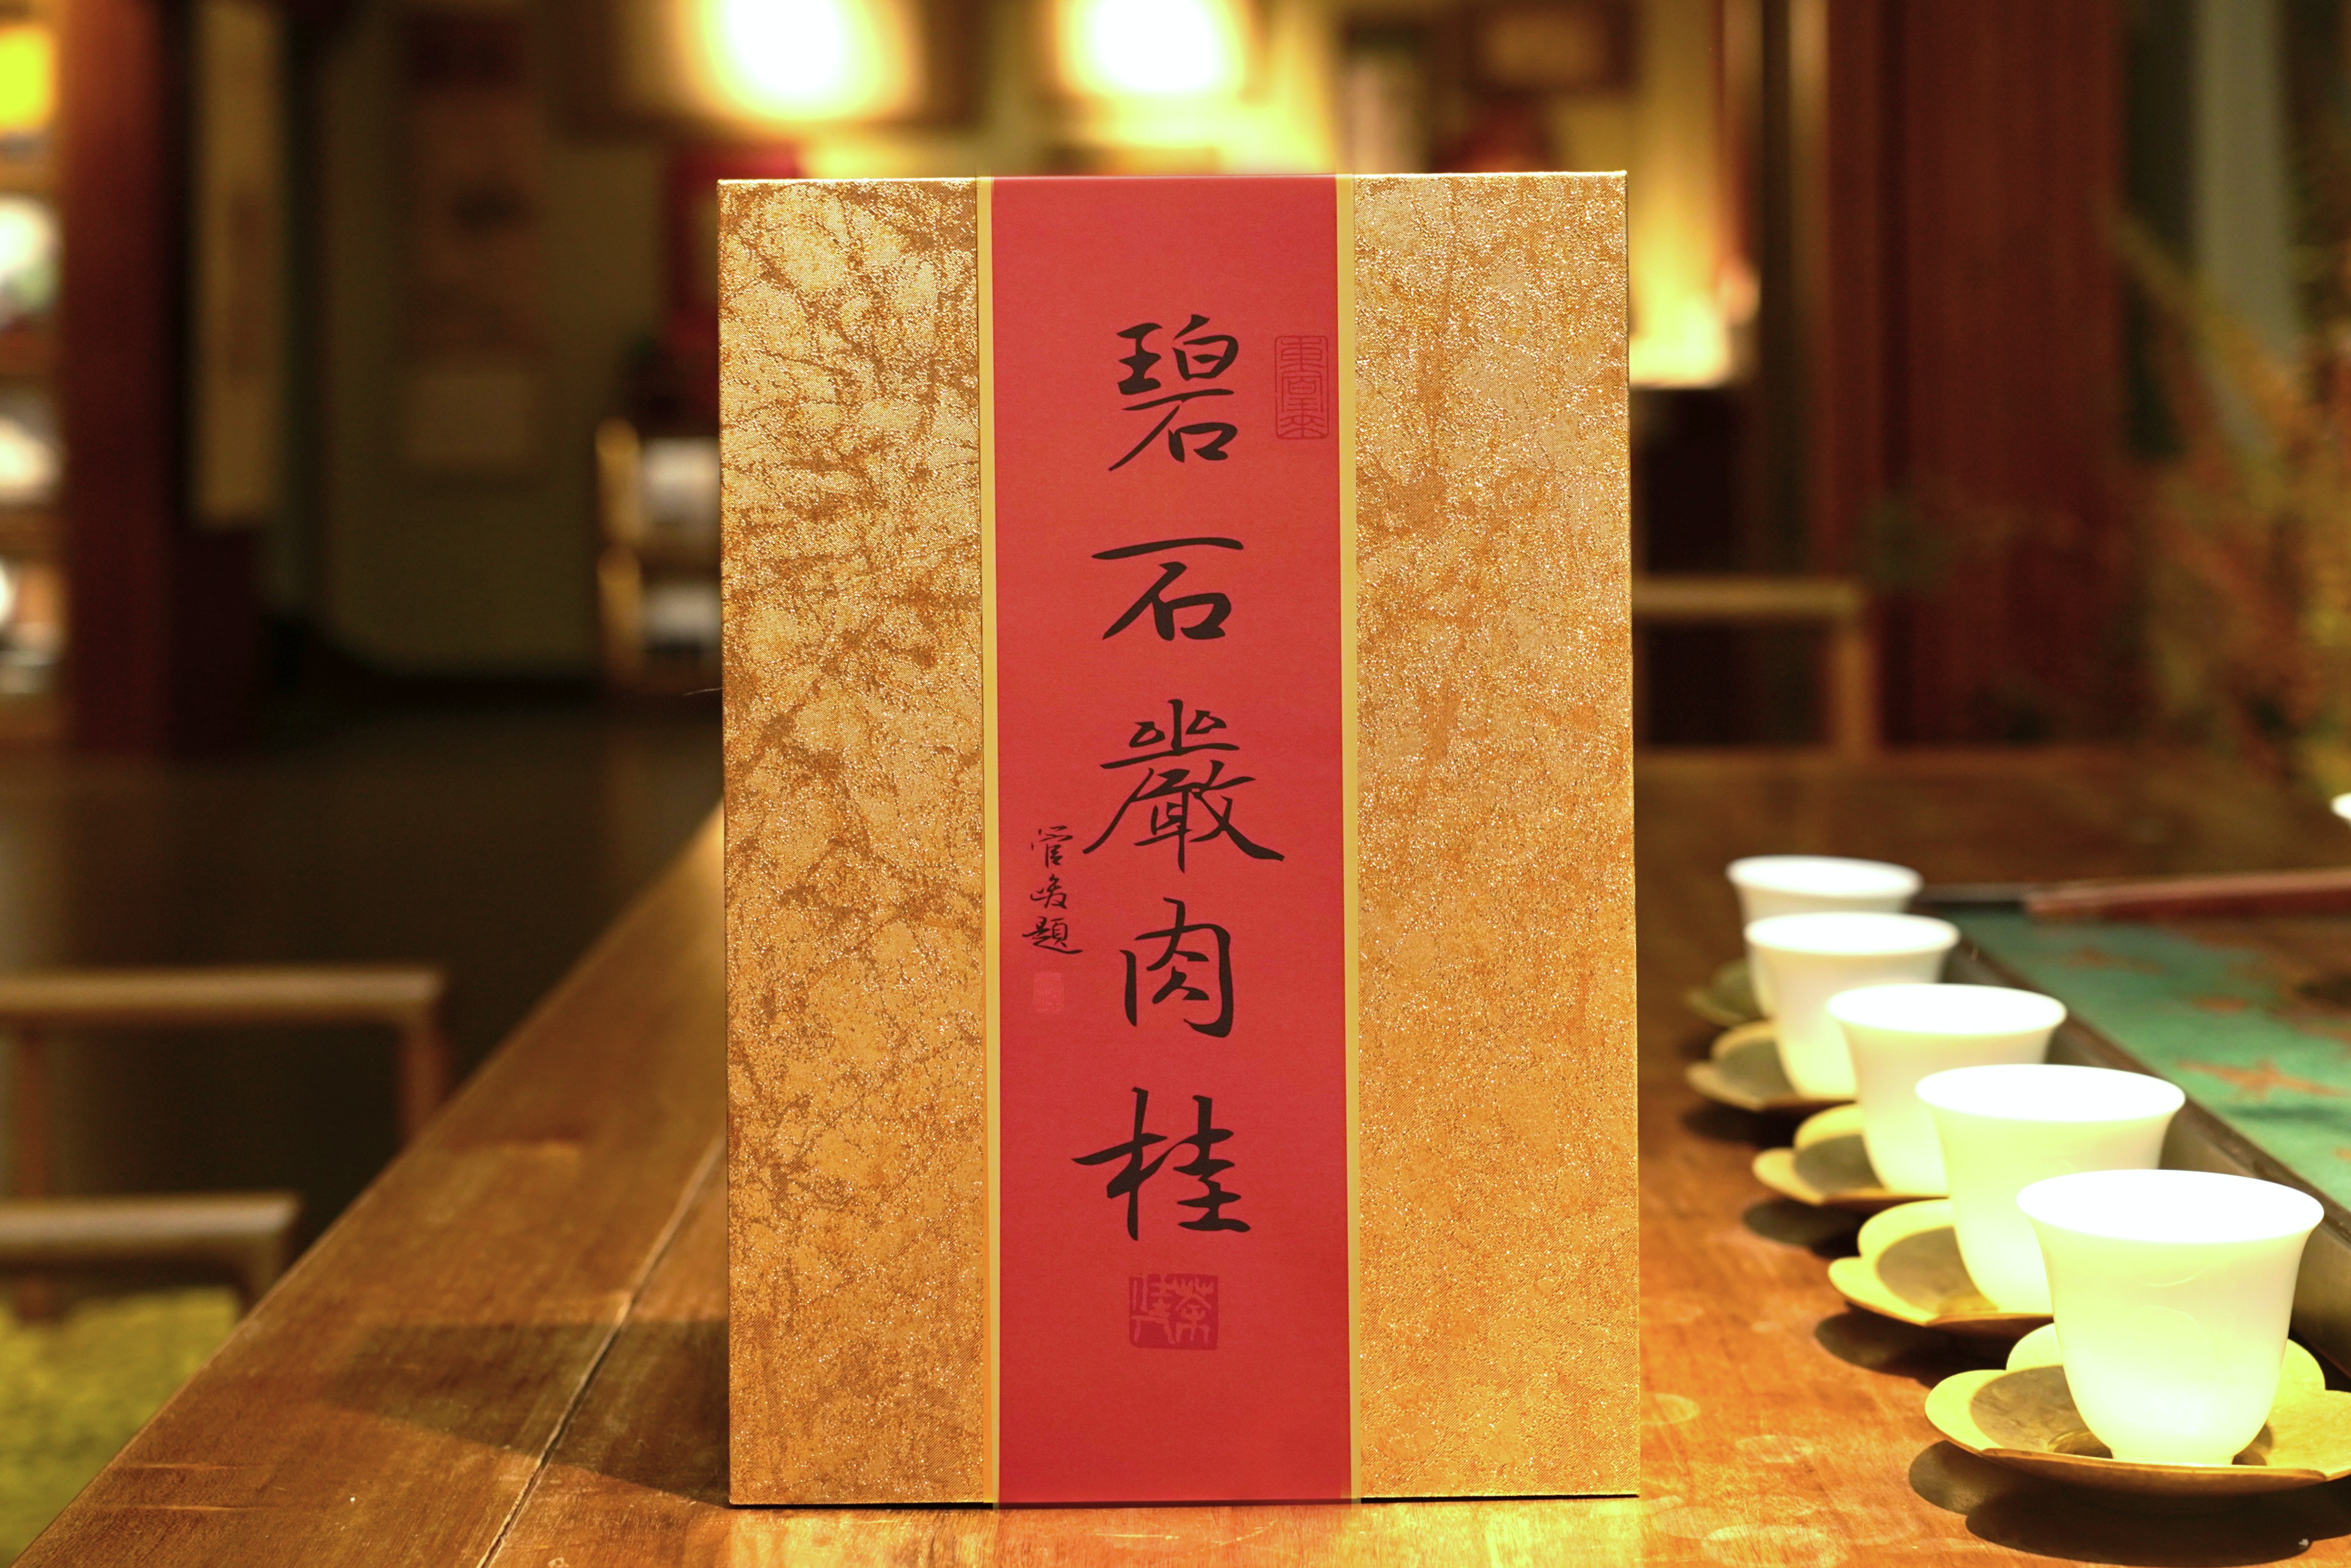 碧石巖肉桂
管峻題